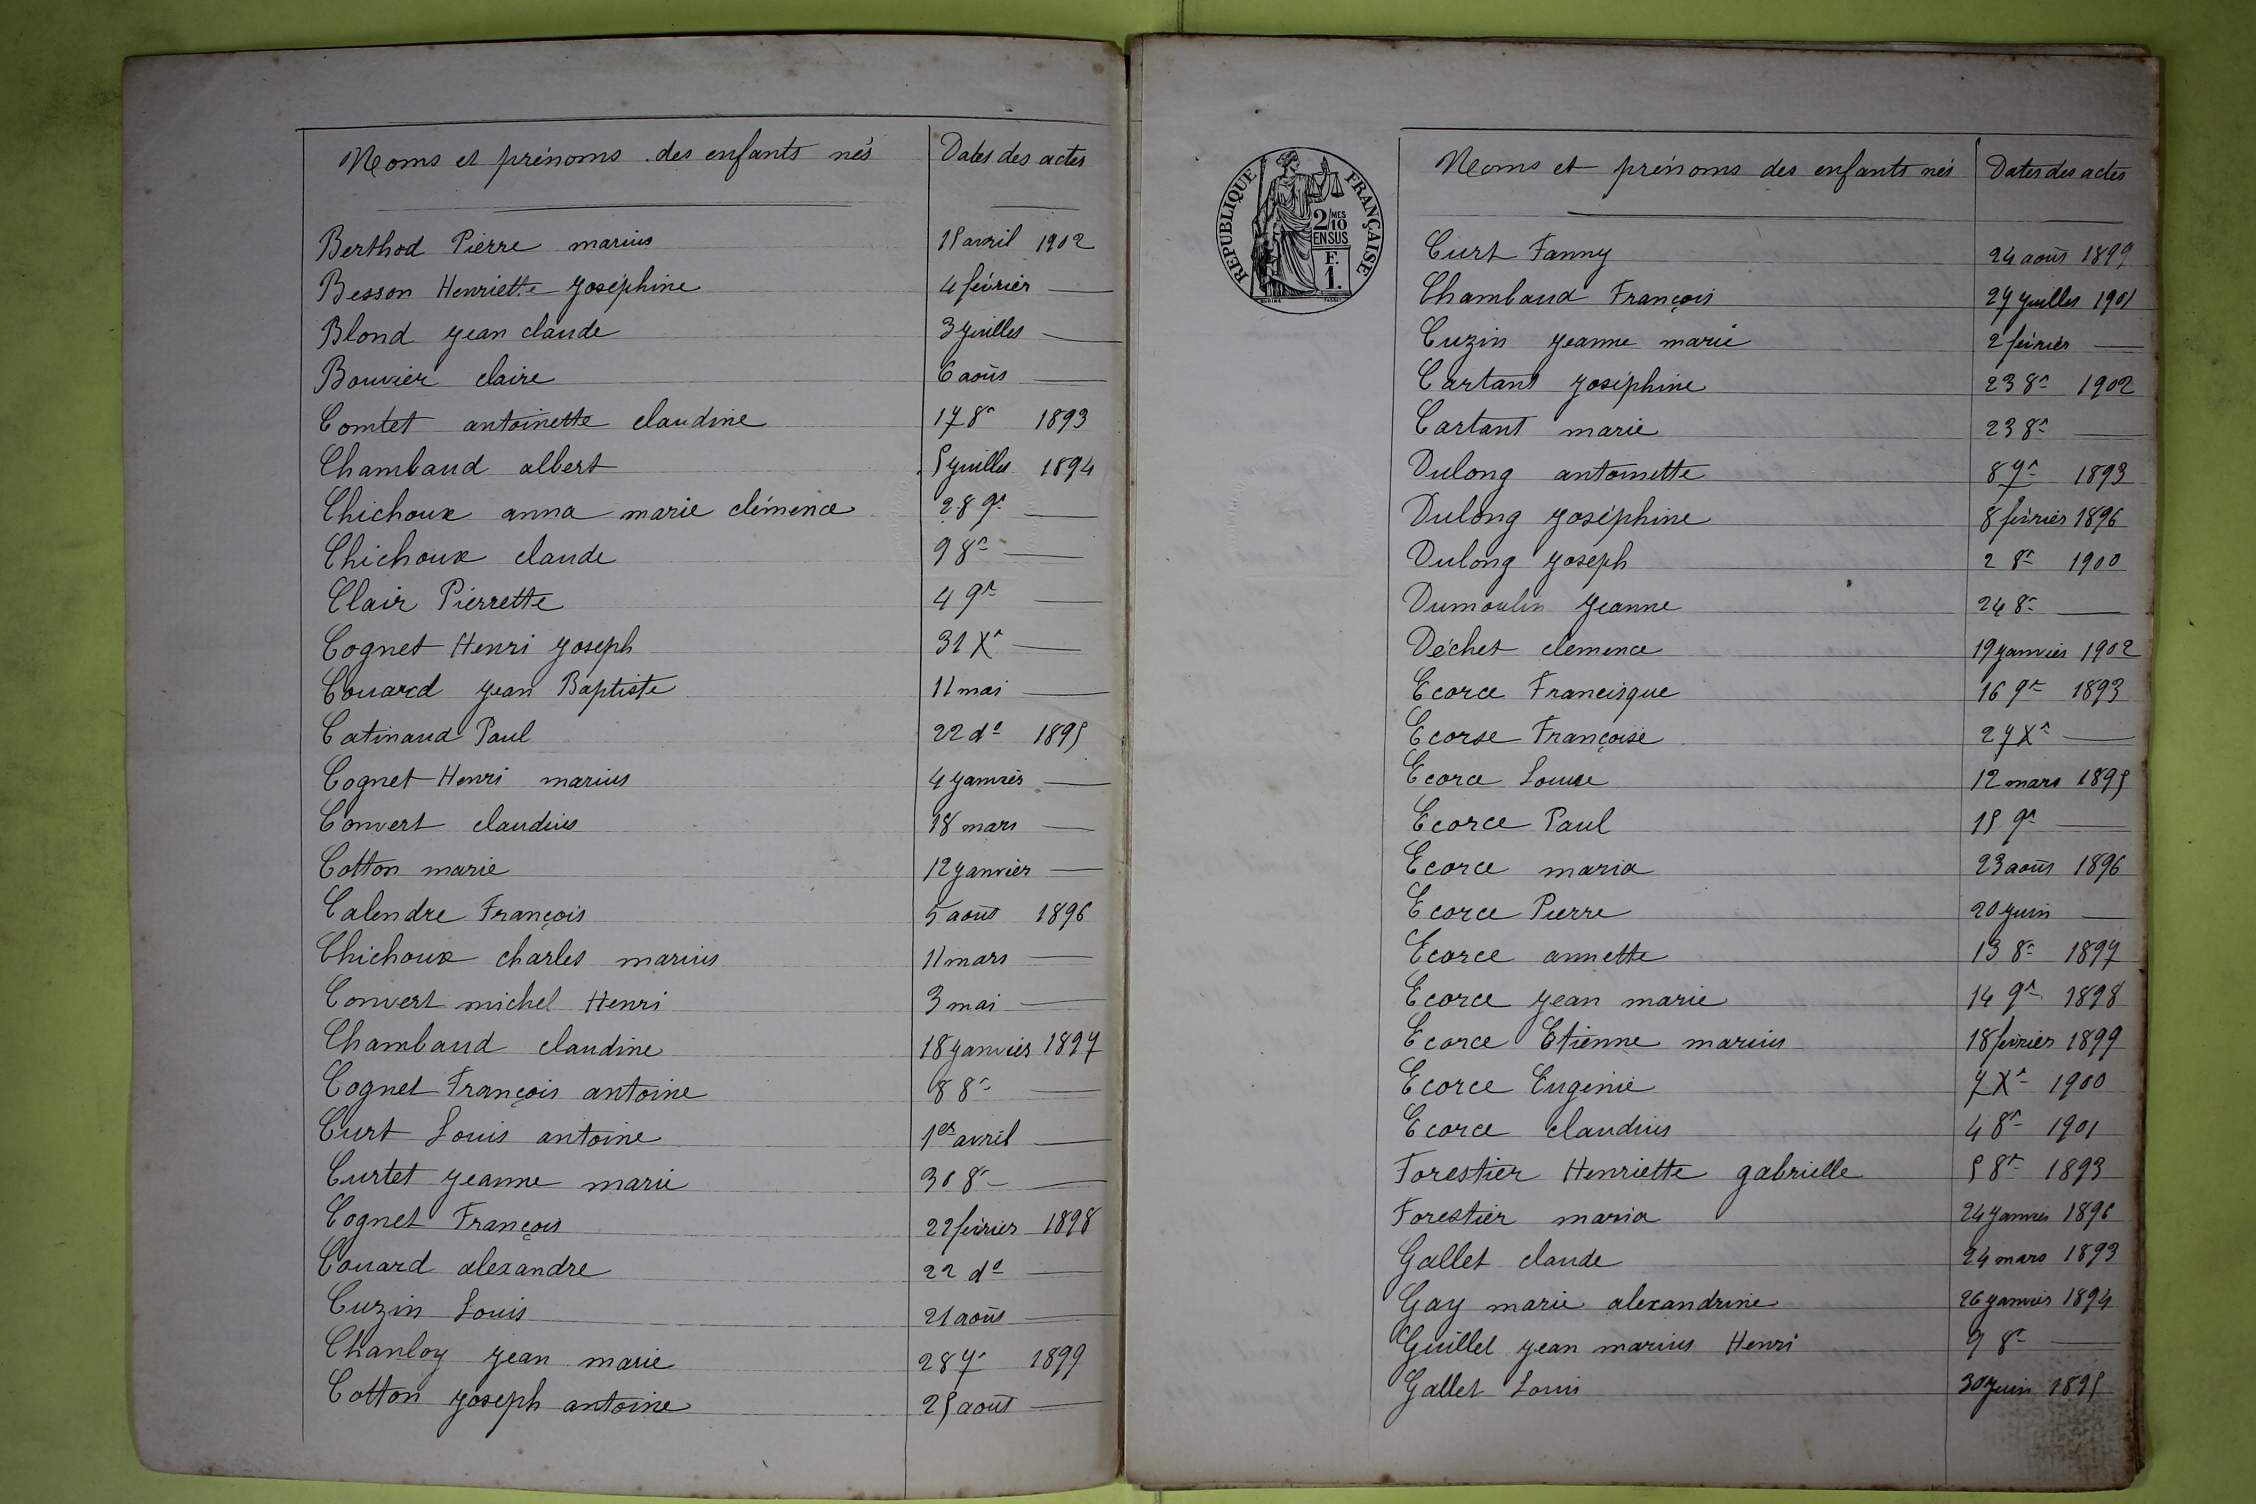 Noms et prénoms des enfants nés Dates des actes
Berthod Pierre marius 15 avril 1902
Besson Henriette Joséphine 4 février —
Blond Jean claude 3 Juillet —
Bouvier claire 6 août —
Comtet antoinette claudine 17 8re 1893
Chambaud albert 5 Juillet 1894
Chichoux anna marie clémence 28 9re —
Chichoux claude 9 8re —
Clair Pierrette 4 9re —
Cognet Henri Joseph 31 Xre —
Couard Jean Baptiste 11 mai —
Catinaud Paul 22 do 1895
Cognet Henri marius 4 Janvier —
Convert claudius 18 mars —
Cotton marie 12 Janvier —
Calendre François 5 août 1896
Chichoux charles marius 11 mars —
Convert michel Henri 3 mai —
Chambaud claudine 18 Janvier 1897
Cognet François antoine 8 8re —
Curt Louis antoine 1er avril —
Curtet Jeanne marie 30 8re —
Cognet François 22 février 1898
Couard alexandre 22 do —
Cuzin Louis 21 août —
Chanloy Jean marie 28 7re 1899
Cotton Joseph antoine 25 août —
RÉPUBLIQUE FRANÇAISE
2/10 MES
EN SUS
F.
1.
Noms et prénoms des enfants nés Dates des actes
Curt Fanny 24 août 1899
Chambaud François 27 Juillet 1901
Cuzin Jeanne marie 2 février —
Cartant Joséphine 23 8re 1902
Cartant marie 23 8re —
Dulong antoinette 8 7re 1893
Dulong Joséphine 8 février 1896
Dulong Joseph 2 8re 1900
Dumoulin Jeanne 24 8re —
Déchet clémence 19 Janvier 1902
Ecorce Francisque 16 9re 1893
Ecorse Françoise 27 Xre —
Ecorce Louise 12 mars 1895
Ecorce Paul 15 9re —
Ecorce maria 23 août 1896
Ecorce Pierre 20 Juin —
Ecorce annette 13 8re 1897
Ecorce Jean marie 14 9re 1898
Ecorce Etienne marius 18 février 1899
Ecorce Eugénie 7 Xre 1900
Ecorce claudius 4 8re 1901
Forestier Henriette gabrielle 5 8re 1893
Forestier maria 24 Janvier 1896
Gallet claude 24 mars 1893
Gay marie alexandrine 26 Janvier 1894
Guillet Jean marius Henri 9 8re —
Gallet Louis 30 Juin 1895